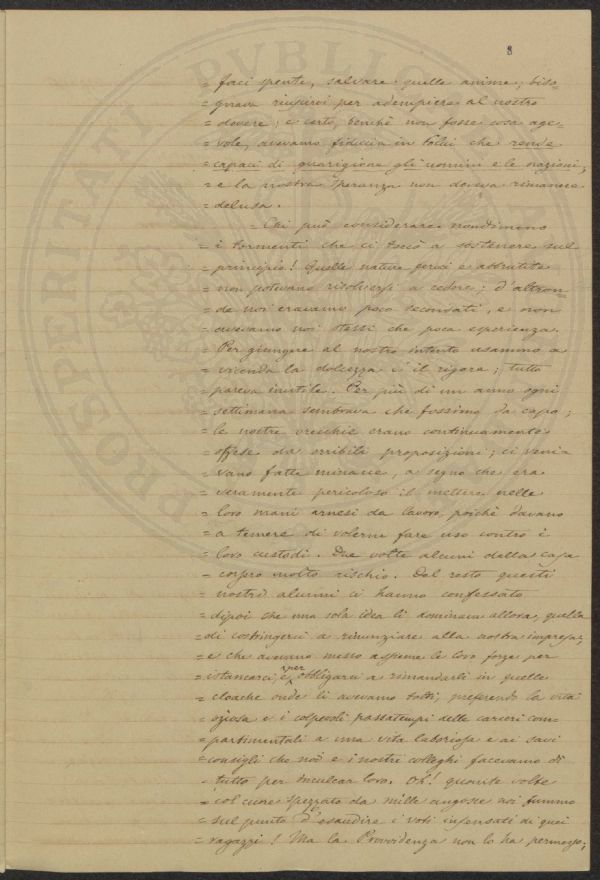 8
= faci spente, salvare quelle anime; biso-
= gnava riuscirvi per adempiere al nostro
= dovere; e certo, benchè non fosse cosa age-
= vole, avevamo fiducia in Colui che rende
= capaci di guarigione gli uomini e le nazioni;
= e la nostra speranza non doveva rimanere
= delusa.
= Chi può considerare nondimeno
= i tormenti che ci toccò a sostenere sul
= principio! Quelle nature feroci e abbrutite
= non potevano risolversi a cedere; d'altron-
= de noi eravamo poco secondati, e non
= avevamo noi stessi che poca esperienza.
= Per giungere al nostro intento usammo a
= vicenda la dolcezza e il rigore; tutto
= pareva inutile. Per più di un anno ogni
= settimana sembrava che fossimo da capo;
= le nostre orecchie erano continuamente
= offese da orribili proposizioni; ci veni-
= vano fatte minacce, a segno che era
= veramente pericoloso il mettere nelle
= loro mani arnesi da lavoro, poichè davano
= a temere di volerne fare uso contro i
= loro custodi. Due volte alcuni della casa
= corsero molto rischio. Del resto questi
= nostri alunni ci hanno confessato
= dipoi che una sola idea li dominava allora, quella
= di costringerci a rinunziare alla nostra impresa;
= e che avevano messo assieme le loro forze per
= istancarci, e per obbligarci a rimandarli in quelle
= cloache onde li avevamo tolti, preferendo la vita
= oziosa e i colpevoli passatempi delle carceri com-
= partimentali a una vita laboriosa e ai savi
= consigli che noi e i nostri colleghi facevamo di
= tutto per inculcar loro. Oh! quante volte
= col cuore spezzato da mille angosce noi fummo
= sul punto d'esaudire i voti insensati di quei
= ragazzi! Ma la Provvidenza non lo ha permesso;
PROSPERITATI PVBLICAE